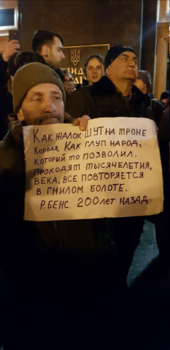 Как жалок шут на троне
Короля, Как глуп народ,
который то позволил.
Проходят тысячелетия,
века, все повторяется
в гнилом болоте.
Р. Бенс. 200 лет назад